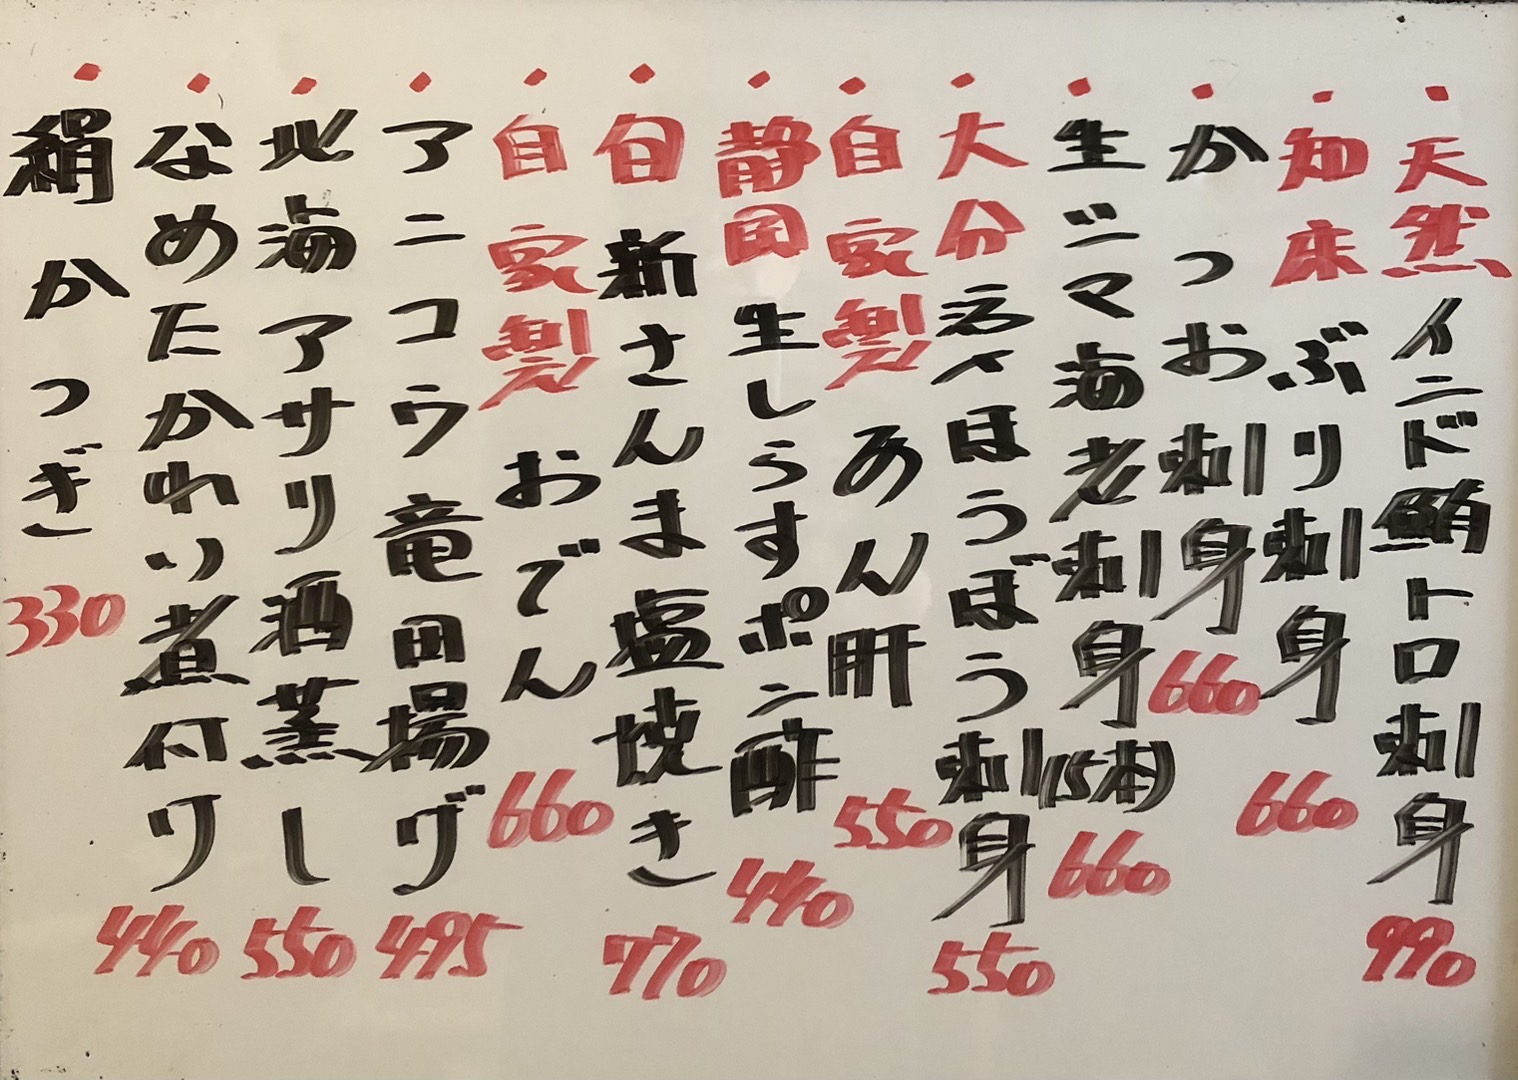 ・天然インド鮪トロ刺身 990
・知床ぶり刺身 660
・かつお刺身 660
・生シマ海老刺身(5本) 660
・大分活〆ほうぼう刺身 550
・自家製あん肝 550
・静岡生しらすポン酢 440
・旬新さんま塩焼き 770
・自家製おでん 660
・アンコウ竜田揚げ 495
・北海アサリ酒蒸し 550
・なめたかれい煮付け 440
・絹かつぎ 330